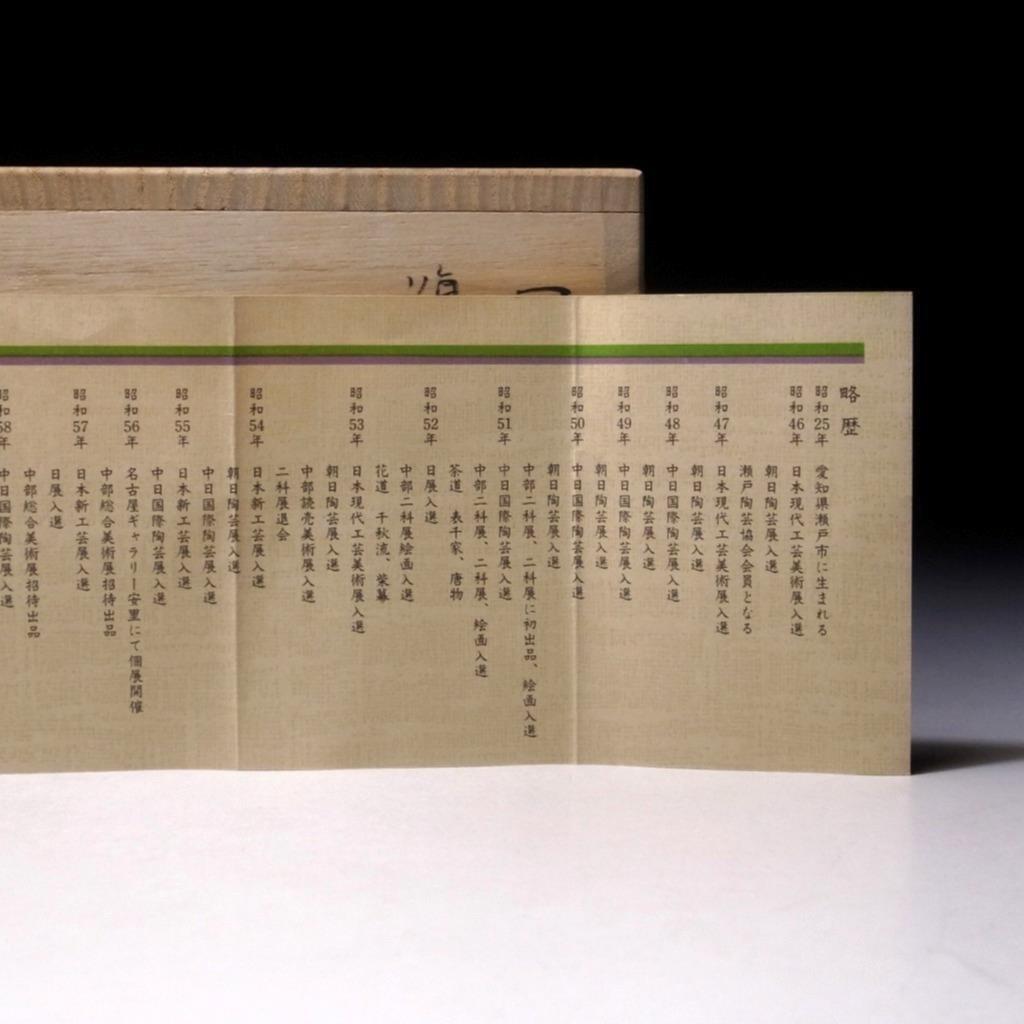 略歴
昭和25年 愛知県瀬戸市に生まれる
昭和46年 日本現代工芸美術展入選
朝日陶芸展入選
瀬戸陶芸協会会員となる
昭和47年 日本現代工芸美術展入選
朝日陶芸展入選
昭和48年 中日国際陶芸展入選
朝日陶芸展入選
昭和49年 中日国際陶芸展入選
朝日陶芸展入選
昭和50年 中日国際陶芸展入選
朝日陶芸展入選
中部二科展、二科展に初出品、絵画入選
昭和51年 中日国際陶芸展入選
中部二科展、二科展、絵画入選
茶道 表千家、唐物
昭和52年 日展入選
中部二科展絵画入選
花道 千秋流、
昭和53年 日本現代工芸美術展入選
朝日陶芸展入選
中部読売美術展入選
二科展退会
昭和54年 日本新工芸展入選
朝日陶芸展入選
中日国際陶芸展入選
昭和55年 日本新工芸展入選
中日国際陶芸展入選
昭和56年 名古屋ギャラリー安里にて個展開催
中部総合美術展招待出品
昭和57年 日本新工芸展入選
日展入選
中部総合美術展招待出品
昭和58年 中日国際陶芸展入選